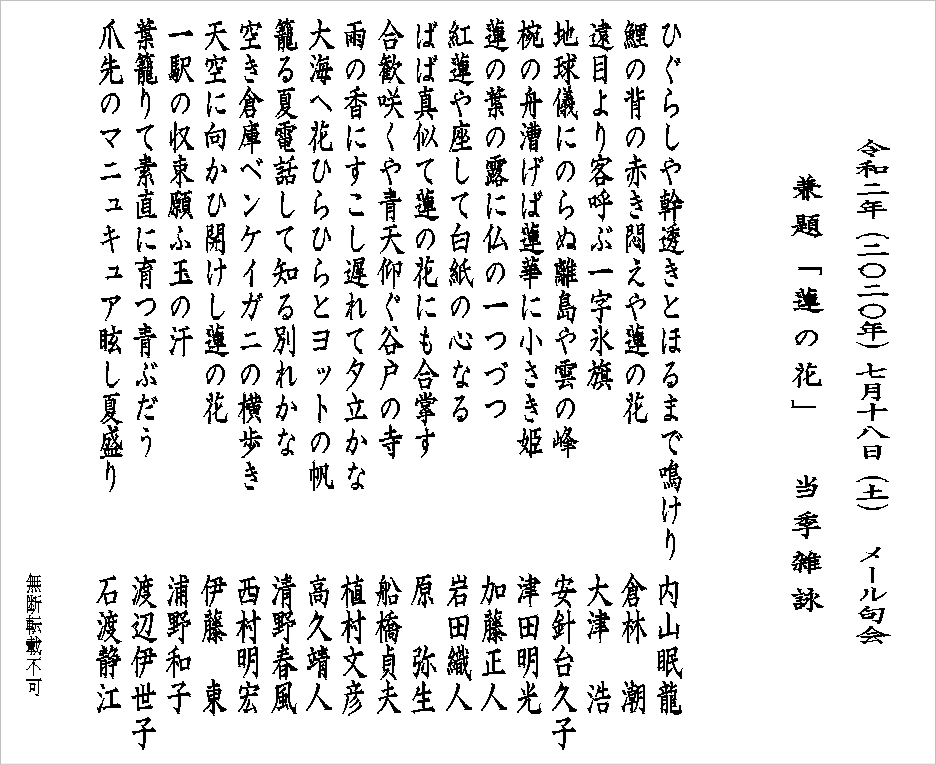 令和二年（二〇二〇年）七月十八日（土）　メール句会
兼題「蓮の花」　当季雑詠
ひぐらしや幹透きとほるまで鳴けり　内山眠龍
鯉の背の赤き悶えや蓮の花　倉林　潮
遠目より客呼ぶ一字氷旗　大津　浩
地球儀にのらぬ離島や雲の峰　安針台久子
椀の舟漕げば蓮華に小さき姫　津田明光
蓮の葉の露に仏の一つづつ　加藤正人
紅蓮や座して白紙の心なる　岩田織人
ばば真似て蓮の花にも合掌す　原　弥生
合歓咲くや青天仰ぐ谷戸の寺　船橋貞夫
雨の香にすこし遅れて夕立かな　植村文彦
大海へ花ひらひらとヨットの帆　高久靖人
籠る夏電話して知る別れかな　清野春風
空き倉庫ベンケイガニの横歩き　西村明宏
天空に向かひ開けし蓮の花　伊藤　東
一駅の収束願ふ玉の汗　浦野和子
葉籠りて素直に育つ青ぶだう　渡辺伊世子
爪先のマニュキュア眩し夏盛り　石渡静江
無断転載不可